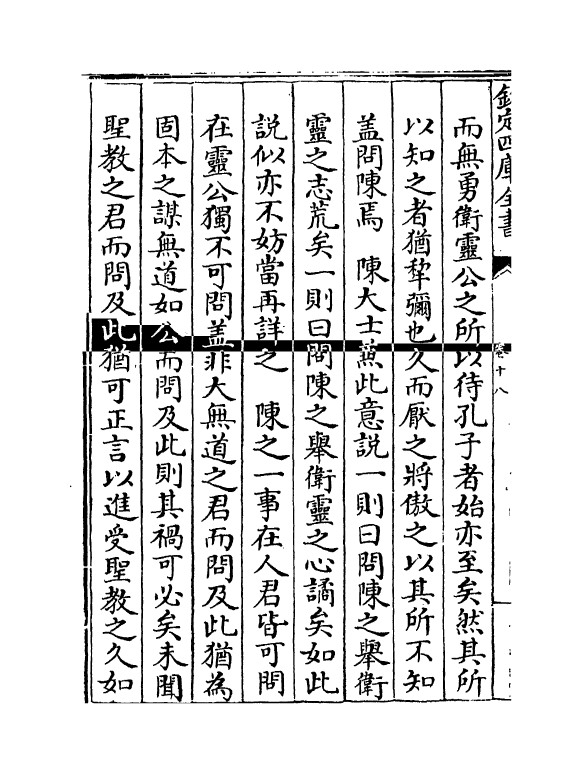 欽定四庫全書
卷十八
而無勇衛靈公之所以待孔子者始亦至矣然其所
以知之者猶犂彌也久而厭之將傲之以其所不知
盖問陳焉　陳大士兼此意説一則曰問陳之舉衛
靈之志荒矣一則曰問陳之舉衛靈之心譎矣如此
説似亦不妨當再詳之　陳之一事在人君皆可問
在靈公獨不可問盖非大無道之君而問及此猶為
固本之謀無道如公而問及此則其禍可必矣未聞
聖教之君而問及此猶可正言以進受聖教之久如